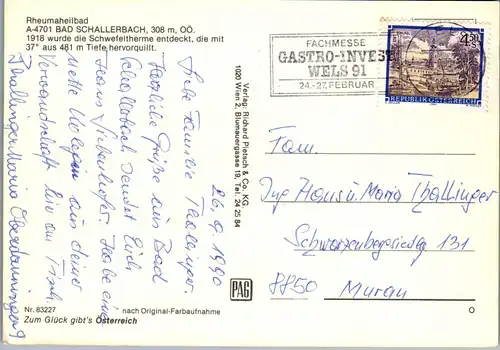 Rheumaheilbad
A-4701 BAD SCHALLERBACH, 308 m, OÖ.
1918 wurde die Schwefeltherme entdeckt, die mit
37° aus 481 m Tiefe hervorquillt.
26.9.1990
Liebe Familie Thallinger.
Herzliche Grüße aus Bad
Schallerbach sendet Euch
Habe eine
nette Kollegin aus deiner
Verwandtschaft bin am Tisch
Thallinger Maria
Verlag: Richard Pietsch & Co. KG.
1020 Wien 2, Blumauergasse 19, Tel. 24 25 84
PAG
FACHMESSE
GASTRO-INVEST
WELS 91
24.-27. FEBRUAR
4.50
REPUBLIK ÖSTERREICH
Fam.
Ing Hans u. Maria Thallinger
131
8850 Murau
Nr. 83227
nach Original-Farbaufnahme
Zum Glück gibt's Österreich
O